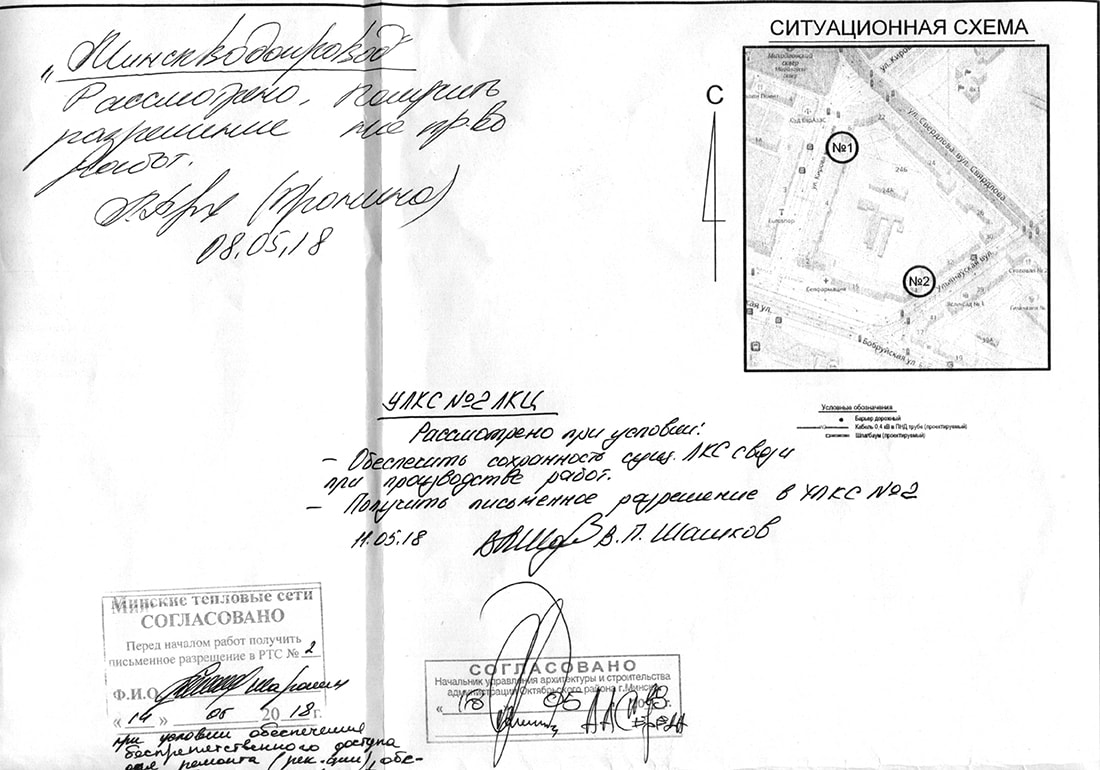 „Минскводопровод"
Рассмотрено. Получить
разрешение на пр-во
работ.
(Пронина)
08.05.18
СИТУАЦИОННАЯ СХЕМА
С
ул. Киров
ул. Свердлова
вул. Свярдлова
№1
ул. Кирова
22
24
24Б
24А
№2
Ульянаўская вул.
Белфармацыя
ская ул.
Бобруйская ул.
17
19
Условные обозначения
Барьер дорожный
Кабель 0,4 кВ в ПНД трубе (проектируемый)
Шлагбаум (проектируемый)
УЛКС №2 ЛКЦ
Рассмотрено при условии:
– Обеспечить сохранность сущ. ЛКС связи
при производстве работ.
– Получить письменное разрешение в УЛКС №2
11.05.18 В.П. Шашков
Минские тепловые сети
СОГЛАСОВАНО
Перед началом работ получить
письменное разрешение в РТС № 2
Ф.И.О.
« 14 » 05 2018 г.
при условии обеспечения
беспрепятственного доступа
для ремонта (рек-ции), обе-
СОГЛАСОВАНО
Начальник управления архитектуры и строительства
администрации Октябрьского района г.Минска
05